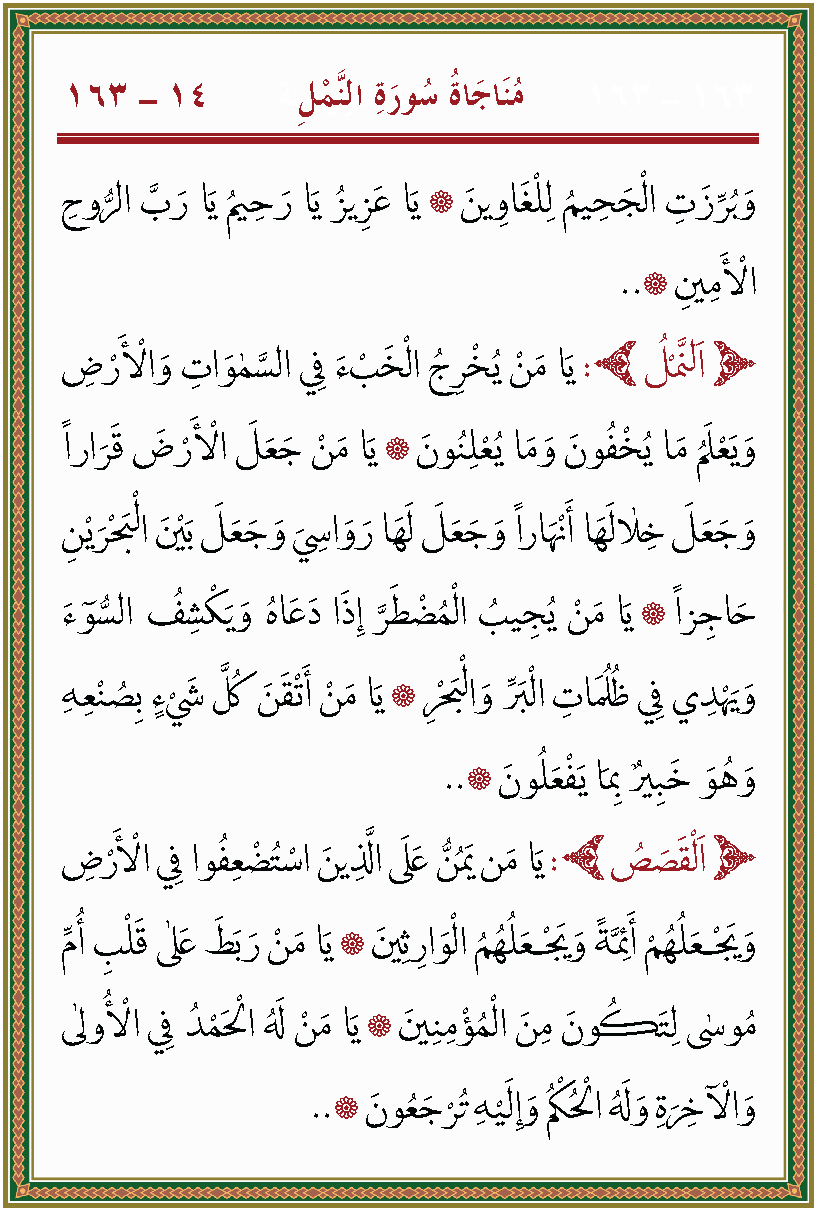 مُنَاجَاةُ سُورَةِ النَّمْلِ ١٤ – ١٦٣
وَبُرِّزَتِ الْجَحِيمُ لِلْغَاوِينَ ۞ يَا عَزِيزُ يَا رَحِيمُ يَا رَبَّ الرُّوحِ
الْأَمِينِ ۞..
﴿ اَلنَّمْلُ ﴾: يَا مَنْ يُخْرِجُ الْخَبْءَ فِي السَّمٰوَاتِ وَالْأَرْضِ
وَيَعْلَمُ مَا يُخْفُونَ وَمَا يُعْلِنُونَ ۞ يَا مَنْ جَعَلَ الْأَرْضَ قَرَاراً
وَجَعَلَ خِلَالَهَا أَنْهَاراً وَجَعَلَ لَهَا رَوَاسِيَ وَجَعَلَ بَيْنَ الْبَحْرَيْنِ
حَاجِزاً ۞ يَا مَنْ يُجِيبُ الْمُضْطَرَّ إِذَا دَعَاهُ وَيَكْشِفُ السُّوٓءَ
وَيَهْدِي فِي ظُلُمَاتِ الْبَرِّ وَالْبَحْرِ ۞ يَا مَنْ أَتْقَنَ كُلَّ شَيْءٍ بِصُنْعِهِ
وَهُوَ خَبِيرٌ بِمَا يَفْعَلُونَ ۞..
﴿ اَلْقَصَصُ ﴾: يَا مَن يَمُنُّ عَلَى الَّذِينَ اسْتُضْعِفُوا فِي الْأَرْضِ
وَيَجْعَلُهُمْ أَئِمَّةً وَيَجْعَلُهُمُ الْوَارِثِينَ ۞ يَا مَنْ رَبَطَ عَلٰى قَلْبِ أُمِّ
مُوسٰى لِتَكُونَ مِنَ الْمُؤْمِنِينَ ۞ يَا مَنْ لَهُ الْحَمْدُ فِي الْأُولٰى
وَالْآخِرَةِ وَلَهُ الْحُكْمُ وَإِلَيْهِ تُرْجَعُونَ ۞..